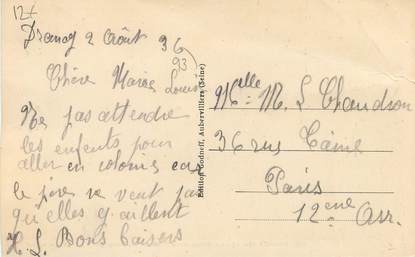 12f
Drancy 2 Août 36
93
Chère Marie Louise
Ne pas attendre
les enfants pour
aller en colonie car
le père ne veut pas
qu'elles y aillent
M. L. Bons baisers
Edition Godneff, Aubervilliers (Seine)
Melle M. L Chaudron
36 rue
Paris
12eme Arr.